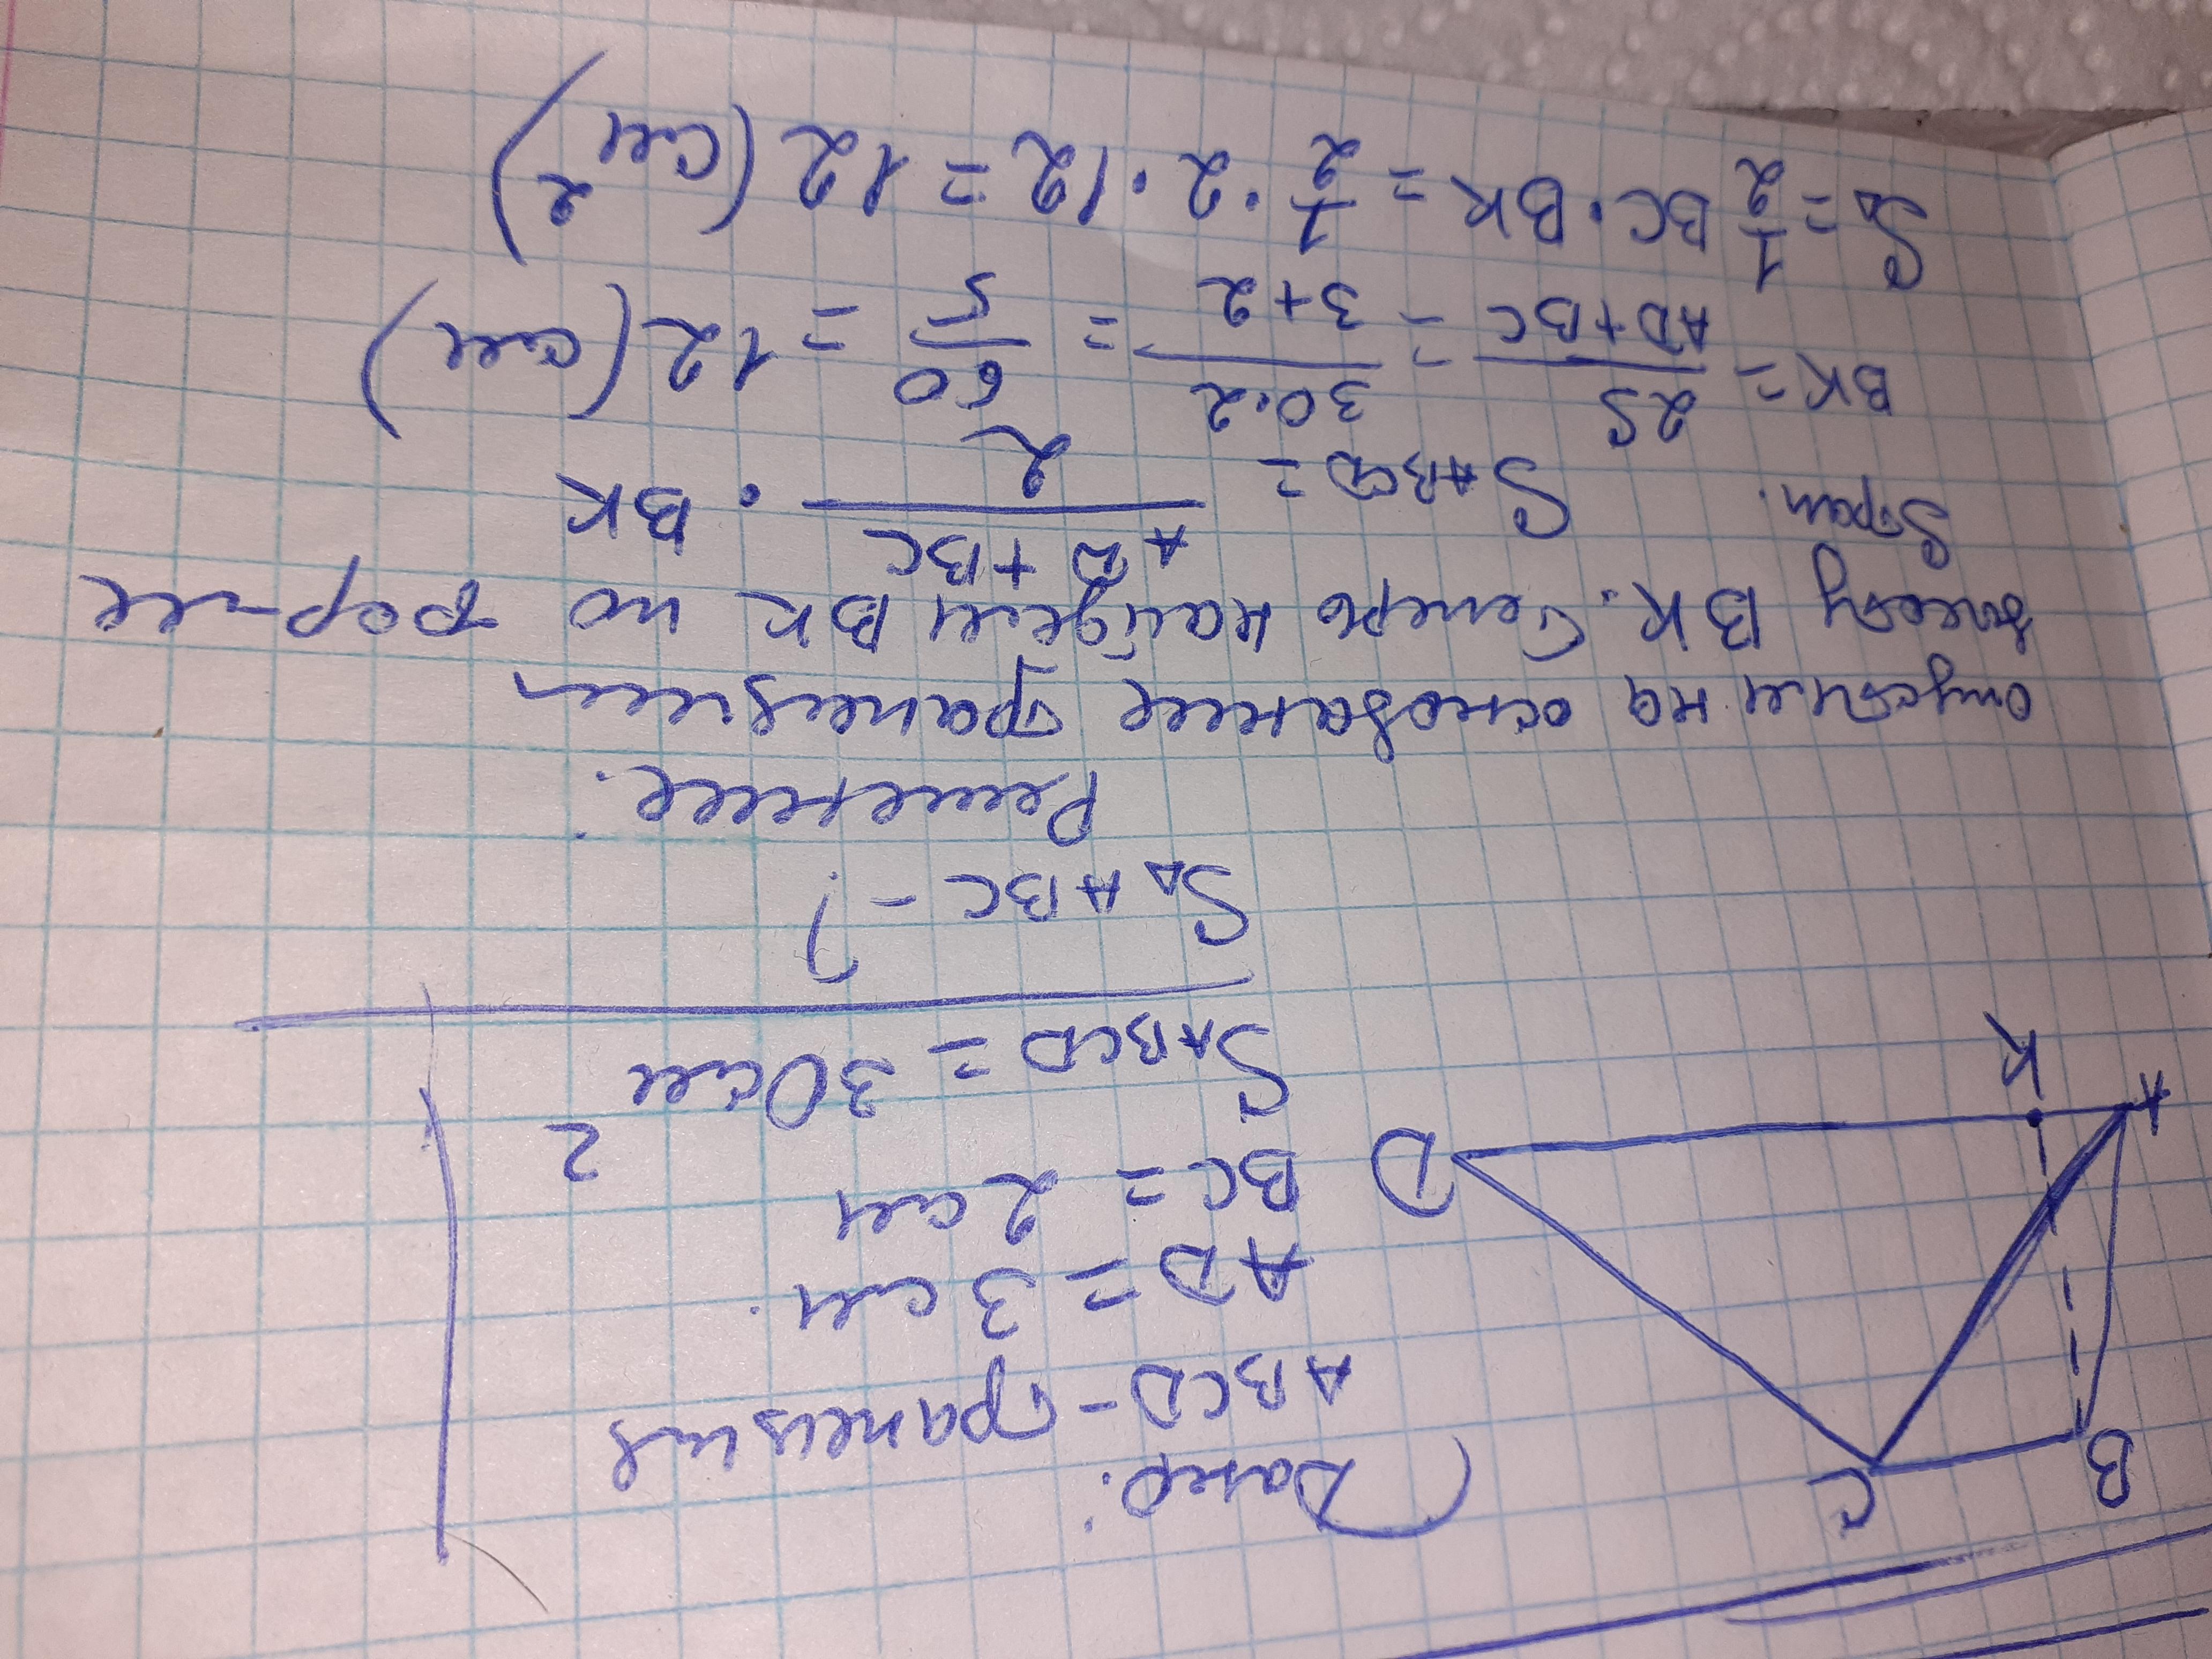 B C
A K D
Дано:
ABCD - трапеция
AD = 3 см.
BC = 2 см
SABCD = 30 см²
S△ABC - ?
Решение.
опустим на основание трапеции
высоту BK. Теперь найдем BK по фор-ле
Sтрап. SABCD = AD+BC/2 · BK
BK = 2S/AD+BC = 30·2/3+2 = 60/5 = 12 (см)
S△ = 1/2 BC · BK = 1/2 · 2 · 12 = 12 (см²)